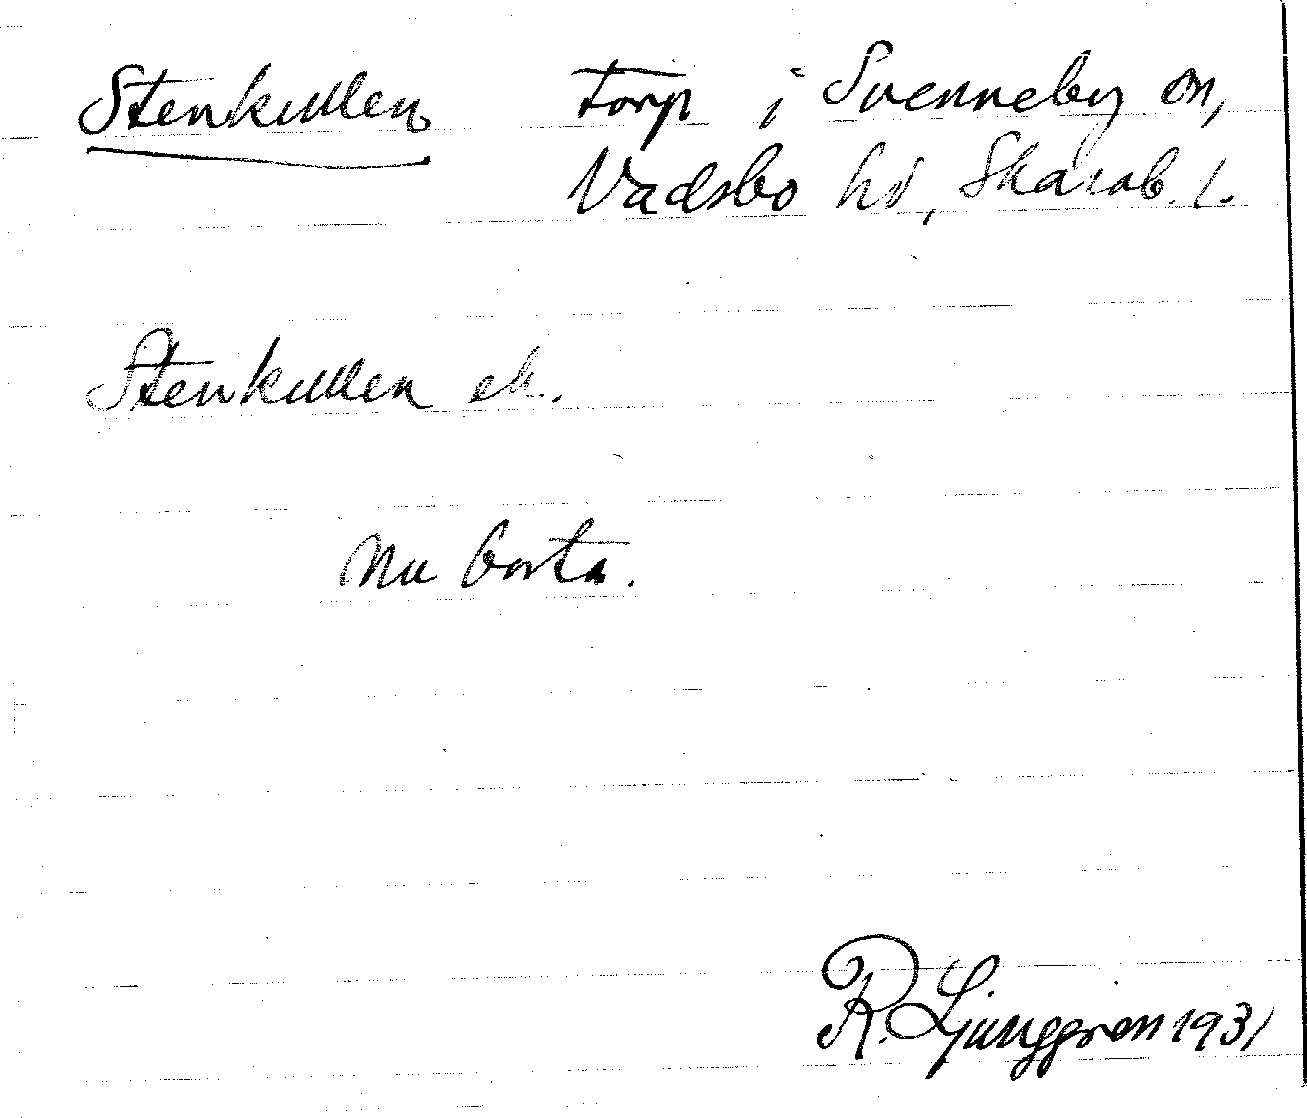 Stenkullen Torp i Svenneby sn,
Vadsbo hd, Skarab. l.
Stenkullen ek.
Nu borta.
R. Ljunggren 1931